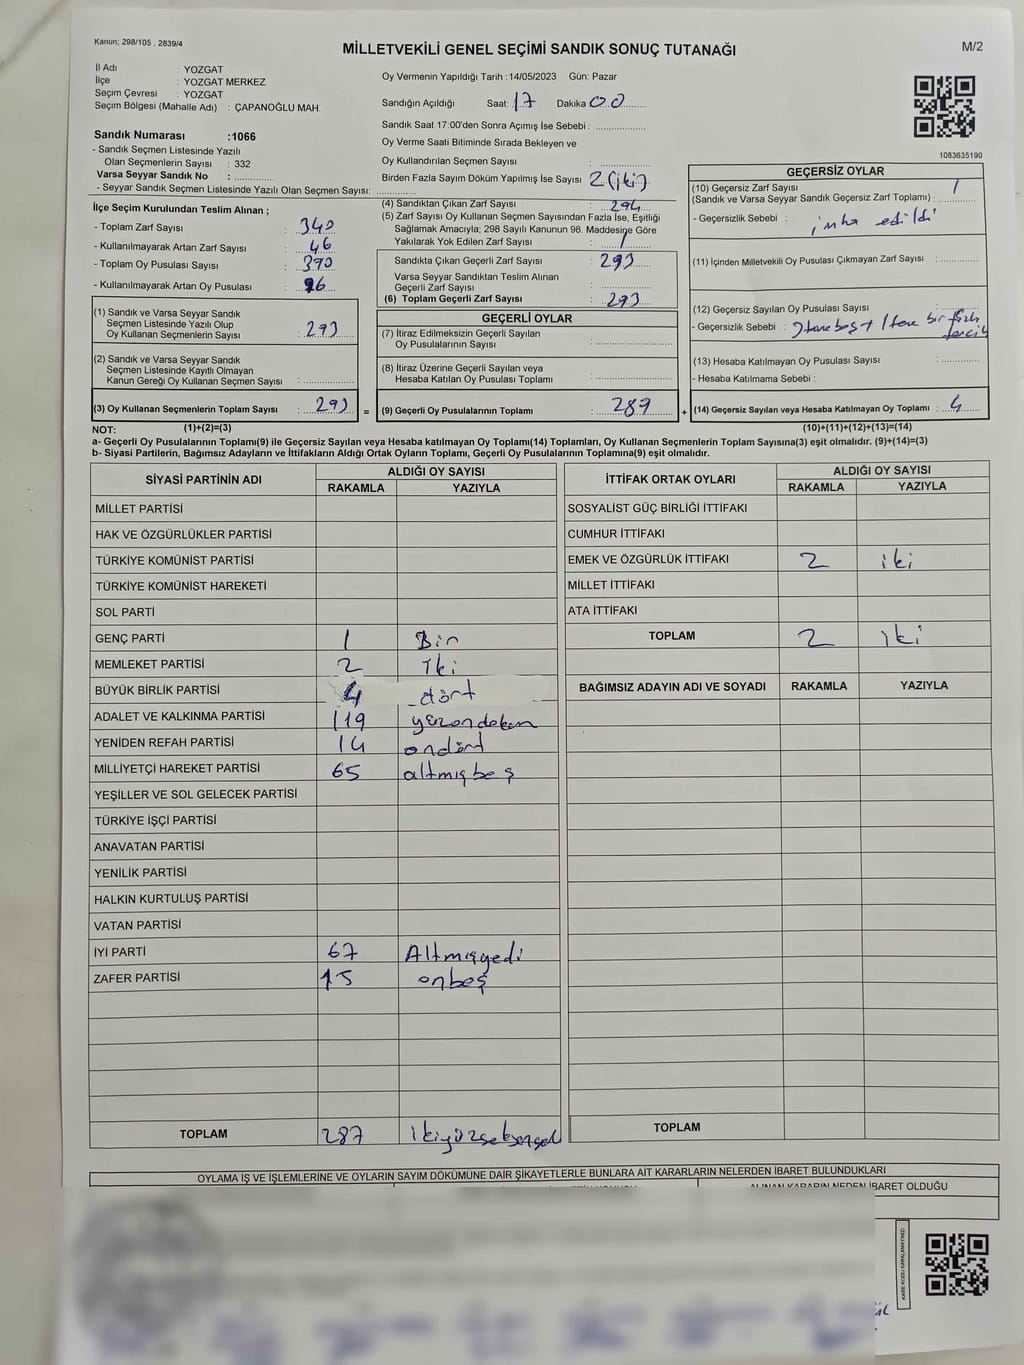 Kanun; 298/105 , 2839/4
MİLLETVEKİLİ GENEL SEÇİMİ SANDIK SONUÇ TUTANAĞI
M/2
İl Adı : YOZGAT
İlçe : YOZGAT MERKEZ
Seçim Çevresi : YOZGAT
Seçim Bölgesi (Mahalle Adı) : ÇAPANOĞLU MAH.
Sandık Numarası :1066
- Sandık Seçmen Listesinde Yazılı
Olan Seçmenlerin Sayısı : 332
Varsa Seyyar Sandık No :
- Seyyar Sandık Seçmen Listesinde Yazılı Olan Seçmen Sayısı:
Oy Vermenin Yapıldığı Tarih :14/05/2023 Gün: Pazar
Sandığın Açıldığı Saat: 17 Dakika 00
Sandık Saat 17:00'den Sonra Açımış İse Sebebi :
Oy Verme Saati Bitiminde Sırada Bekleyen ve
Oy Kullandırılan Seçmen Sayısı :
Birden Fazla Sayım Döküm Yapılmış İse Sayısı 2 (iki)
1083635190
İlçe Seçim Kurulundan Teslim Alınan ;
- Toplam Zarf Sayısı : 340
- Kullanılmayarak Artan Zarf Sayısı : 46
- Toplam Oy Pusulası Sayısı : 390
- Kullanılmayarak Artan Oy Pusulası : 96
(1) Sandık ve Varsa Seyyar Sandık
Seçmen Listesinde Yazılı Olup
Oy Kullanan Seçmenlerin Sayısı : 293
(2) Sandık ve Varsa Seyyar Sandık
Seçmen Listesinde Kayıtlı Olmayan
Kanun Gereği Oy Kullanan Seçmen Sayısı :
(3) Oy Kullanan Seçmenlerin Toplam Sayısı : 293 =
(4) Sandıktan Çıkan Zarf Sayısı : 294
(5) Zarf Sayısı Oy Kullanan Seçmen Sayısından Fazla İse, Eşitliği
Sağlamak Amacıyla; 298 Sayılı Kanunun 98. Maddesine Göre
Yakılarak Yok Edilen Zarf Sayısı : 1
Sandıkta Çıkan Geçerli Zarf Sayısı : 293
Varsa Seyyar Sandıktan Teslim Alınan
Geçerli Zarf Sayısı :
(6) Toplam Geçerli Zarf Sayısı : 293
GEÇERLİ OYLAR
(7) İtiraz Edilmeksizin Geçerli Sayılan
Oy Pusulalarının Sayısı :
(8) İtiraz Üzerine Geçerli Sayılan veya
Hesaba Katılan Oy Pusulası Toplamı :
(9) Geçerli Oy Pusulalarının Toplamı : 289 +
GEÇERSİZ OYLAR
(10) Geçersiz Zarf Sayısı 1
(Sandık ve Varsa Seyyar Sandık Geçersiz Zarf Toplamı) :
- Geçersizlik Sebebi : imha edildi
(11) İçinden Milletvekili Oy Pusulası Çıkmayan Zarf Sayısı :
(12) Geçersiz Sayılan Oy Pusulası Sayısı :
- Geçersizlik Sebebi : 3 tane boş + 1 tane bir fazla tercih
(13) Hesaba Katılmayan Oy Pusulası Sayısı :
- Hesaba Katılmama Sebebi :
(14) Geçersiz Sayılan veya Hesaba Katılmayan Oy Toplamı : 4
NOT: (1)+(2)=(3) (10)+(11)+(12)+(13)=(14)
a- Geçerli Oy Pusulalarının Toplamı(9) ile Geçersiz Sayılan veya Hesaba katılmayan Oy Toplamı(14) Toplamları, Oy Kullanan Seçmenlerin Toplam Sayısına(3) eşit olmalıdır. (9)+(14)=(3)
b- Siyasi Partilerin, Bağımsız Adayların ve İttifakların Aldığı Ortak Oyların Toplamı, Geçerli Oy Pusulalarının Toplamına(9) eşit olmalıdır.
SİYASİ PARTİNİN ADI ALDIĞI OY SAYISI
RAKAMLA YAZIYLA
MİLLET PARTİSİ
HAK VE ÖZGÜRLÜKLER PARTİSİ
TÜRKİYE KOMÜNİST PARTİSİ
TÜRKİYE KOMÜNİST HAREKETİ
SOL PARTİ
GENÇ PARTİ 1 Bir
MEMLEKET PARTİSİ 2 İki
BÜYÜK BİRLİK PARTİSİ 4 dört
ADALET VE KALKINMA PARTİSİ 119 yüzondokuz
YENİDEN REFAH PARTİSİ 14 ondört
MİLLİYETÇİ HAREKET PARTİSİ 65 altmışbeş
YEŞİLLER VE SOL GELECEK PARTİSİ
TÜRKİYE İŞÇİ PARTİSİ
ANAVATAN PARTİSİ
YENİLİK PARTİSİ
HALKIN KURTULUŞ PARTİSİ
VATAN PARTİSİ
İYİ PARTİ 67 Altmışyedi
ZAFER PARTİSİ 15 onbeş
TOPLAM 287 ikiyüzseksenyedi
İTTİFAK ORTAK OYLARI ALDIĞI OY SAYISI
RAKAMLA YAZIYLA
SOSYALİST GÜÇ BİRLİĞİ İTTİFAKI
CUMHUR İTTİFAKI
EMEK VE ÖZGÜRLÜK İTTİFAKI 2 iki
MİLLET İTTİFAKI
ATA İTTİFAKI
TOPLAM 2 iki
BAĞIMSIZ ADAYIN ADI VE SOYADI RAKAMLA YAZIYLA
TOPLAM
OYLAMA İŞ VE İŞLEMLERİNE VE OYLARIN SAYIM DÖKÜMÜNE DAİR ŞİKAYETLERLE BUNLARA AİT KARARLARIN NELERDEN İBARET BULUNDUKLARI
ALINAN KARARIN NEDEN İBARET OLDUĞU
KARE KODU KARALAMAYINIZ!